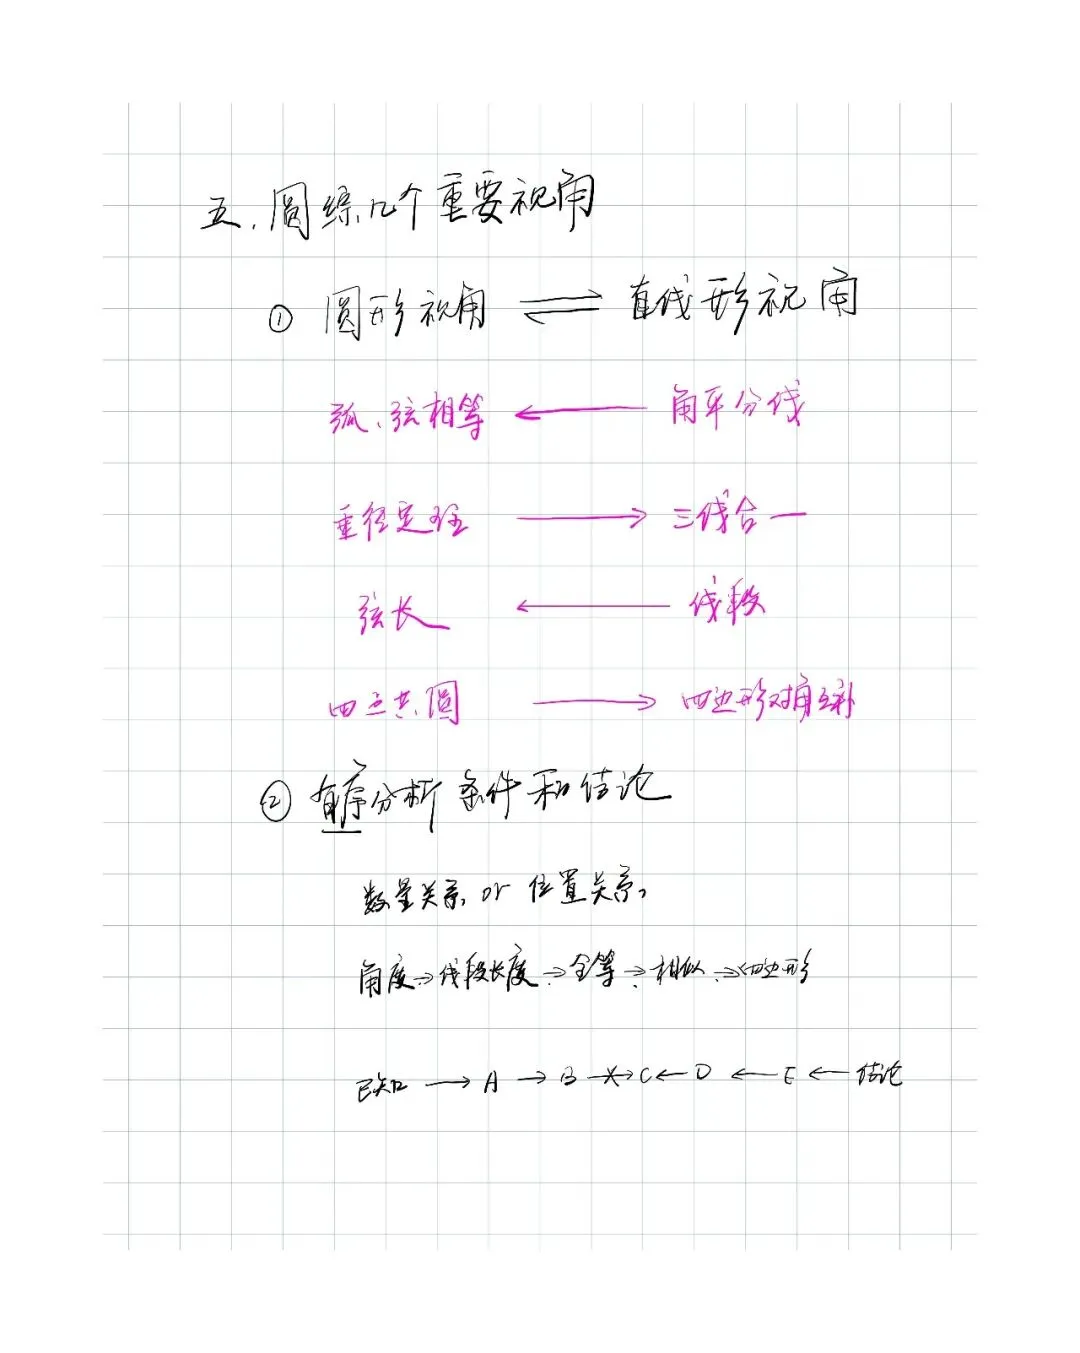 五、圆综几个重要视角
① 圆形视角 ⇌ 直线形视角
弧、弦相等 ← 角平分线
垂径定理 → 三线合一
弦长 ← 线段
四点共圆 → 四边形对角互补
② 有序分析条件和结论
数量关系 or 位置关系
角度→线段长度→全等→相似→四边形
已知 → A → B -×→ C ← D ← E ← 结论